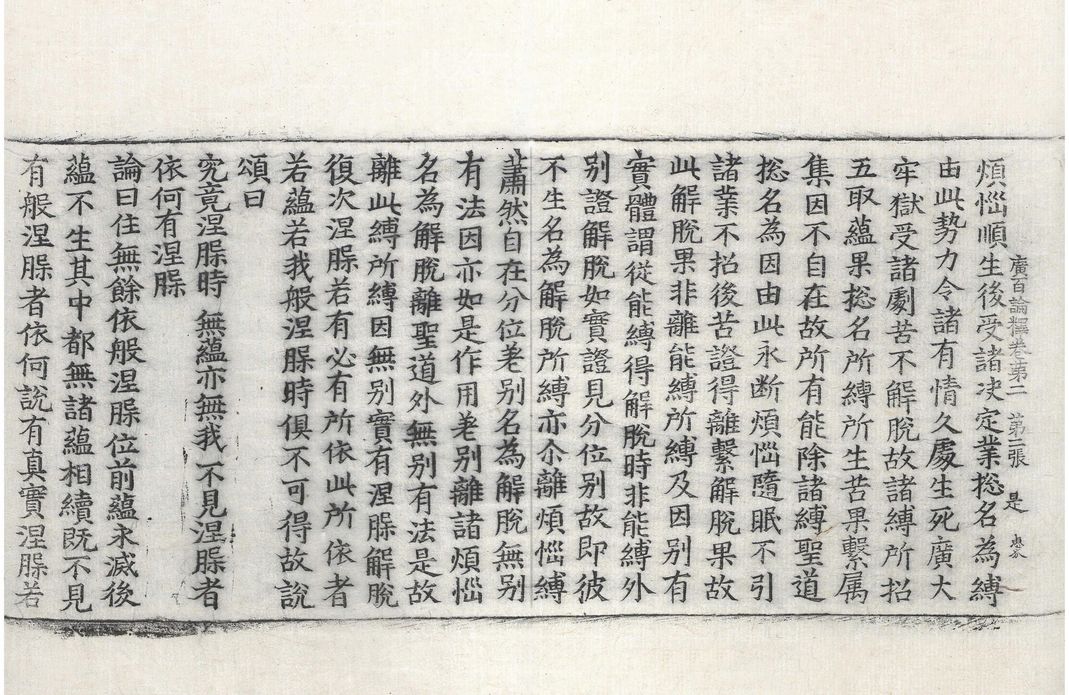 煩惱順生後受諸决定業捴名為縛
廣百論釋卷第二 第二張 是
由此勢力令諸有情久處生死廣大
牢獄受諸劇苦不解脫故諸縛所招
五取蘊果捴名所縛所生苦果繫属
集因不自在故所有能除諸縛聖道
捴名為因由此永断煩惱隨眠不引
諸業不招後苦證得離繫解脫果故
此解脫果非離能縛所縛及因别有
實體謂從能縛得解脫時非能縛外
别證解脫如實證見分位别故即彼
不生名為解脫所縛亦尒離煩惱縛
蕭然自在分位差别名為解脫無别
有法因亦如是作用差别離諸煩惱
名為解脫離聖道外無别有法是故
離此縛所縛因無别實有涅槃解脫
復次涅槃若有必有所依此所依者
若蘊若我般涅槃時俱不可得故說
頌曰
究竟涅槃時 無蘊亦無我 不見涅槃者
依何有涅槃
論曰住無餘依般涅槃位前蘊永滅後
蘊不生其中都無諸蘊相續既不見
有般涅槃者依何說有真實涅槃若